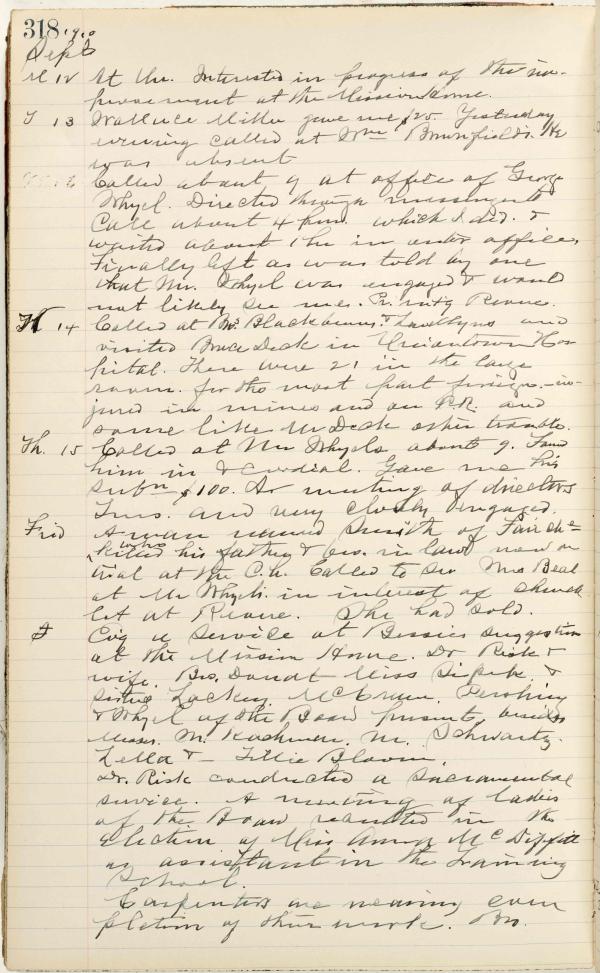 318 1910
Sept
M 12 At the. Interested in progress of the im-
provement at the Mission Home.
T 13 Wallace Miller gave me $25. Yesterday
evening called at Wm Brownfields. He
was absent
Called about 9 at office of George
Whyel. Directed through messenger to
Call about 4 p.m. which I did. &
waited about 1 hr in outer office,
Finally left as was told by one
that Mr. Whyel was engaged & would
not likely see me. Pr. mtg Revere.
14 Called at Mrs Blackburns, & Llewellyns and
visited Bruce Deck in Uniontown Hos
pital. There were 21 in the large
room. for the most part foreign. in-
jured in mines and on R.R. and
some like Mr Deck other trouble.
Th. 15 Called at Mr Whyels about 9. Found
him in & cordial. Gave me his
subn $100. At meeting of directors
Trus. and very closely engaged.
Frid A man named Smith of Fairch=
who killed his father & bro. in law now on
trial at the C.H. Called to see Mrs Beal
at Mr Whyels in interest of church
lot at Revere. She had sold.
S Eve'g a service at Bessies suggestion
at the Mission Home. Dr Risk &
wife. Bro. Dandt Miss &
Sister Lackey, McCrum, Pershing
& Whyel of the Board present, besides
Messrs. M. Kochman, M. Schwartz.
Zella & Tillie Bloom.
Dr. Risk conducted a sacramental
service. A meeting of ladies
of the Board resulted in the
Election of Miss Anna McDiffitt
as assistant in the Training
School.
Carpenters are nearing com
pletion of their work. Bro.